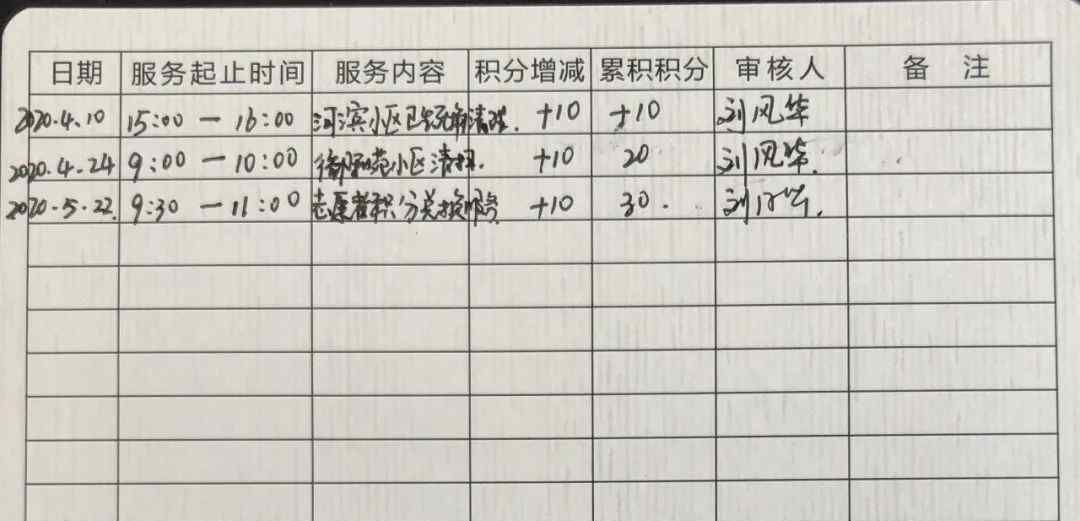 日期 服务起止时间 服务内容 积分增减 累积积分 审核人 备 注
2020.4.10 15:00 — 16:00 河滨小区卫生死角清理. +10 +10 刘风华
2020.4.24 9:00 — 10:00 小区清扫. +10 20 刘风华.
2020.5.22. 9:30 — 11:00 志愿者积分兑换 +10 30. 刘风华.